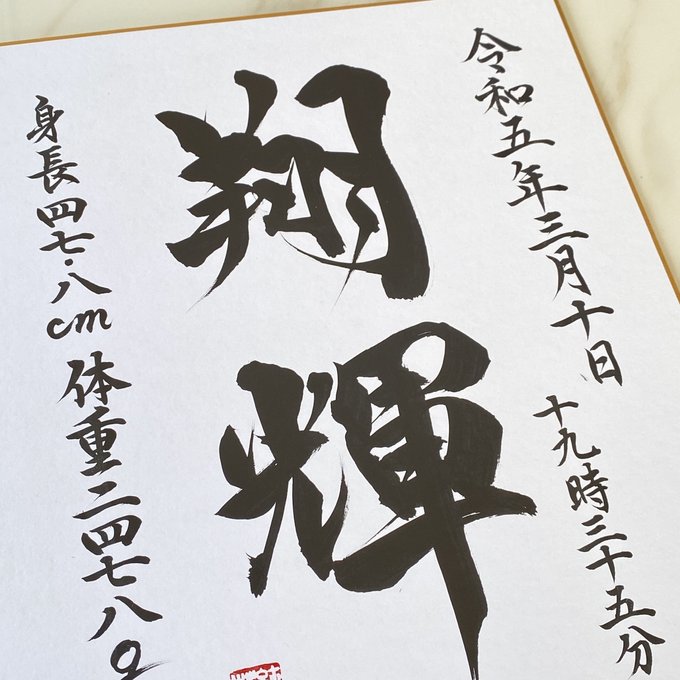 令和五年三月十日
十九時三十五分
翔輝
身長四七・八cm 体重二四七八g